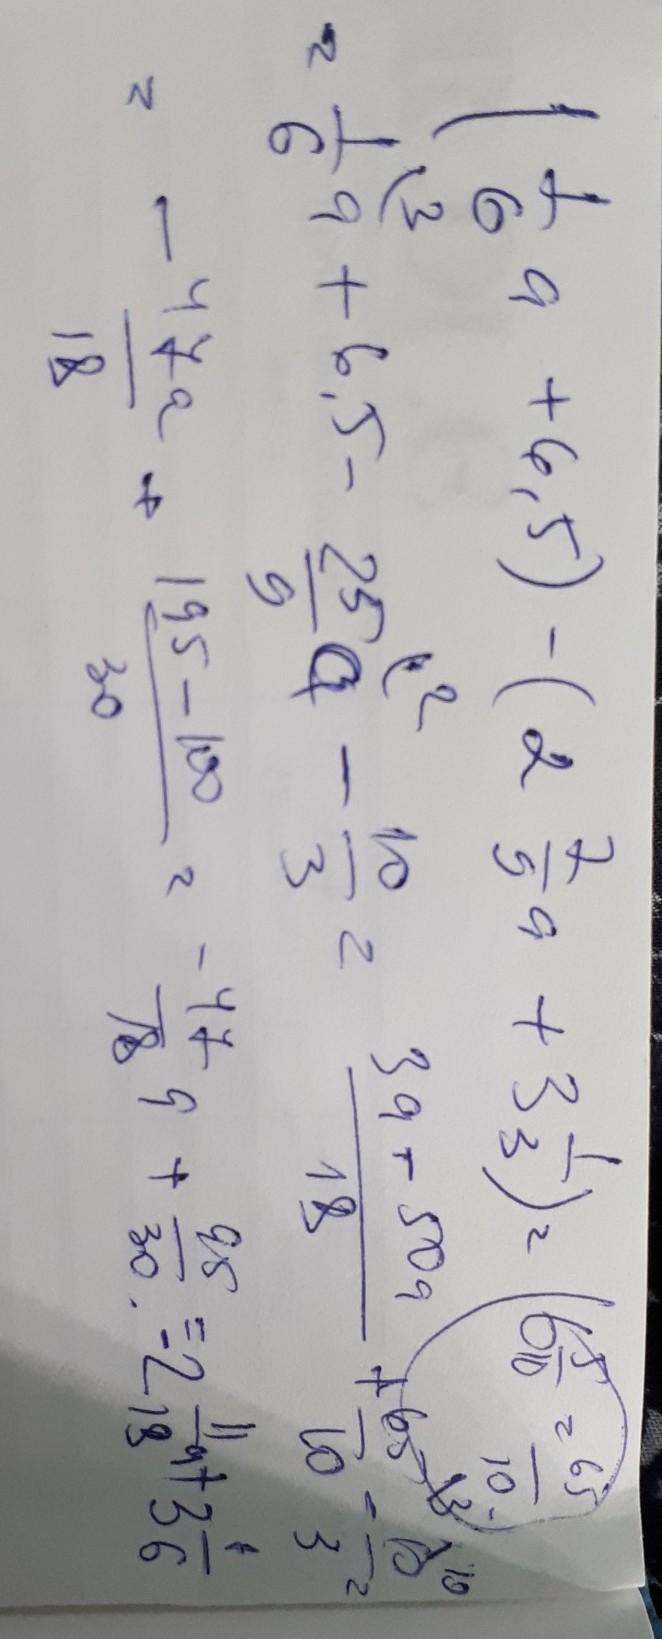 (1/6 a + 6,5) - (2 7/9 a + 3 1/3) = (6 5/10 = 65/10)
= 1/6 (3 a + 6,5 - 25/9 (2 a - 10/3 = 3a - 50a / 18 + 65/10 (3 - 10/3 (10 =
= -47a/18 + 195 - 100 / 30 = -47/18 a + 95/30 = -2 11/18 a + 3 1/6